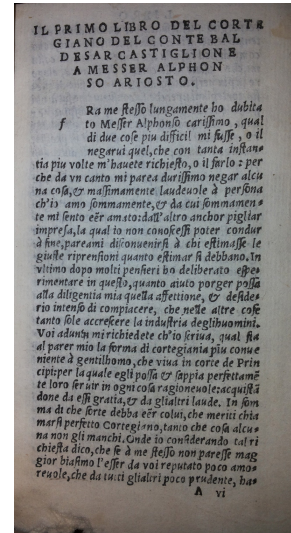 IL PRIMO LIBRO DEL CORTE
GIANO DEL CONTE BAL
DESAR CASTIGLIONE
A MESSER ALPHON
SO ARIOSTO.
f Ra me ſteſſo lungamente ho dubita
to Meſſer Alphonſo cariſſimo, qual
di due coſe piu difficil mi fuſſe, o il
negarui quel, che con tanta inſtan⸗
tia piu volte m'hauete richieſto, o il farlo: per
che da vn canto mi parea duriſſimo negar alcu
na coſa, & maſſimamente laudeuole à perſona
ch'io amo ſommamente, & da cui ſommamen⸗
te mi ſento eēr amato: dall'altro anchor pigliar
impreſa, la qual io non conoſceſſi poter condur
à fine, pareami diſconuenirſi à chi eſtimaſſe le
giuſte riprenſioni quanto eſtimar ſi debbano. In
vltimo dopo molti penſieri ho deliberato eſpe⸗
rimentare in queſto, quanto aiuto porger poſſa
alla diligentia mia quella affettione, & deſide⸗
rio intenſo di compiacere, che nelle altre coſe
tanto ſole accreſcere la induſtria deglihuomini.
Voi adunq; mi richiedete ch'io ſcriua, qual ſia
al parer mio la forma di cortegiania piu conue
niente à gentilhomo, che viua in corte de Prin
cipi: per la quale egli poſſa & ſappia perfettamē
te loro ſeruir in ogni coſa ragioneuole: acquiſtā
done da eſſi gratia, & da glialtri laude. In ſom
ma di che ſorte debba eēr colui, che meriti chia
marſi perfetto Cortegiano, tanto che coſa alcu⸗
na non gli manchi. Onde io conſiderando tal ri
chieſta dico, che ſe à me ſteſſo non pareſſe mag
gior biaſimo l'eſſer da voi reputato poco amo⸗
reuole, che da tutti glialtri poco prudente, ha⸗
A vi